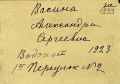 Васина
Александра
Сергеевна
Водопой 1923
1й Переулок №2